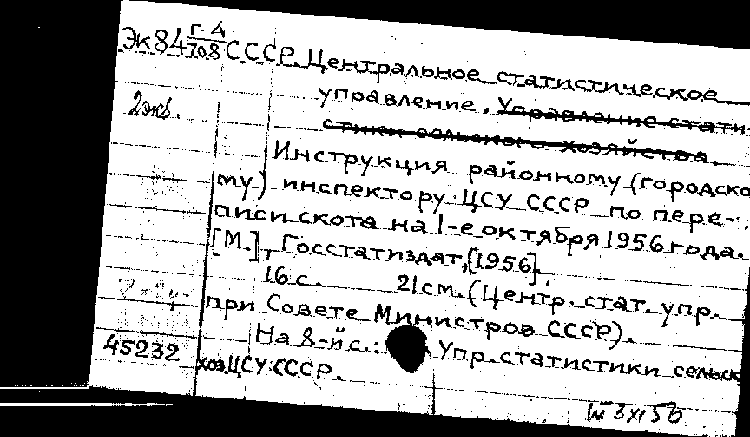 Эк84 Г-4/708 СССР. Центральное статистическое
управление. Управление стати-
стики сельского хозяйства.
2экз.
Инструкция районному (городско-
му) инспектору ЦСУ СССР по пере-
писи скота на 1-е октября 1956 года.
[М.], Госстатиздат, [1956].
16 с. 21 см. (Центр. стат. упр.
при Совете Министров СССР).
На 8-й с.: Упр. статистики сельск.
45232 хоз ЦСУ СССР.